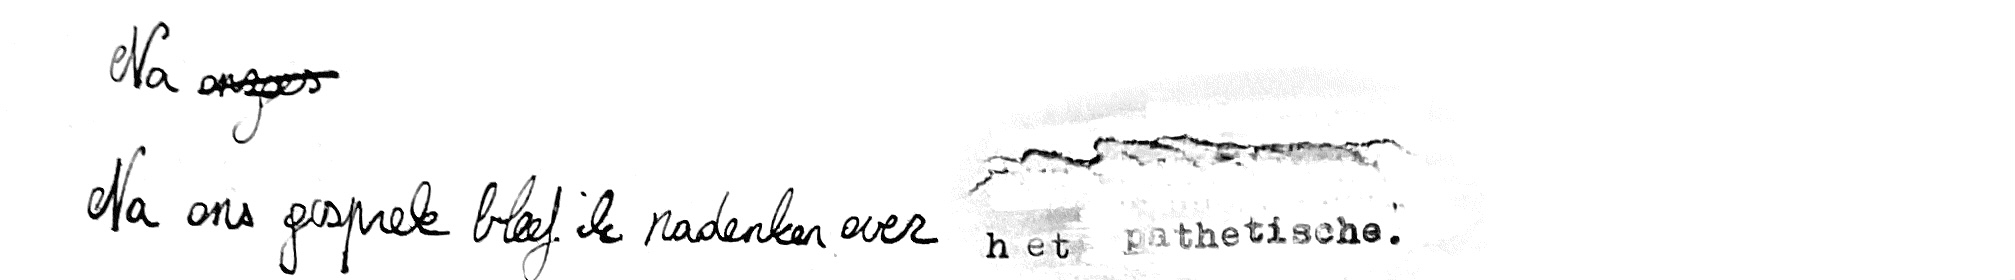 Na
Na ons gesprek bleef ik nadenken over het pathetische.